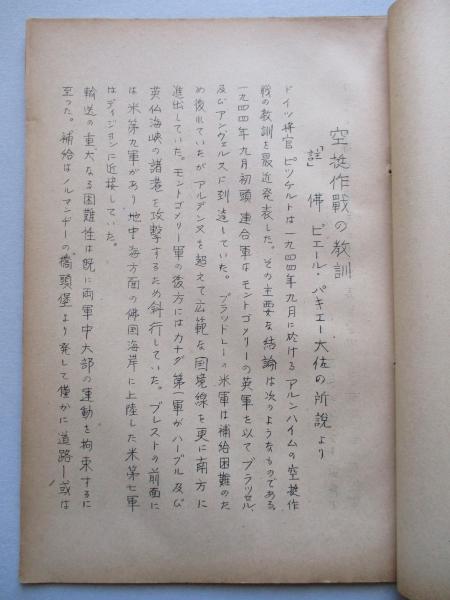 空挺作戰の教訓
「註」 佛 ピエール・パキエー大佐の所說より
ドイツ將官ビツケルトは一九四四年九月に於けるアルンハイムの空挺作
戰の教訓を最近発表した。その主要な結論は次のようなものである。
一九四四年九月初頭連合軍はモントゴメリーの英軍を以てブラッセル、
及びアンヴェルスに到達していた。ブラッドレーの米軍は補給困難のた
め後れていたがアルデンヌを超えて広範な国境線を更に南方に
進出していた。モントゴメリー軍の後方にはカナダ第一軍がハーブル及び
英仏海峡の諸港を攻撃するため斜行していた。ブレストの前面に
は米第九軍があり地中海方面の佛国海岸に上陸した米第七軍
はディジョンに近接していた。
輸送の重大なる困難性は既に両軍中大部の運動を拘束するに
至った。補給はノルマンデーの橋頭堡より発して僅かに道路ー或は